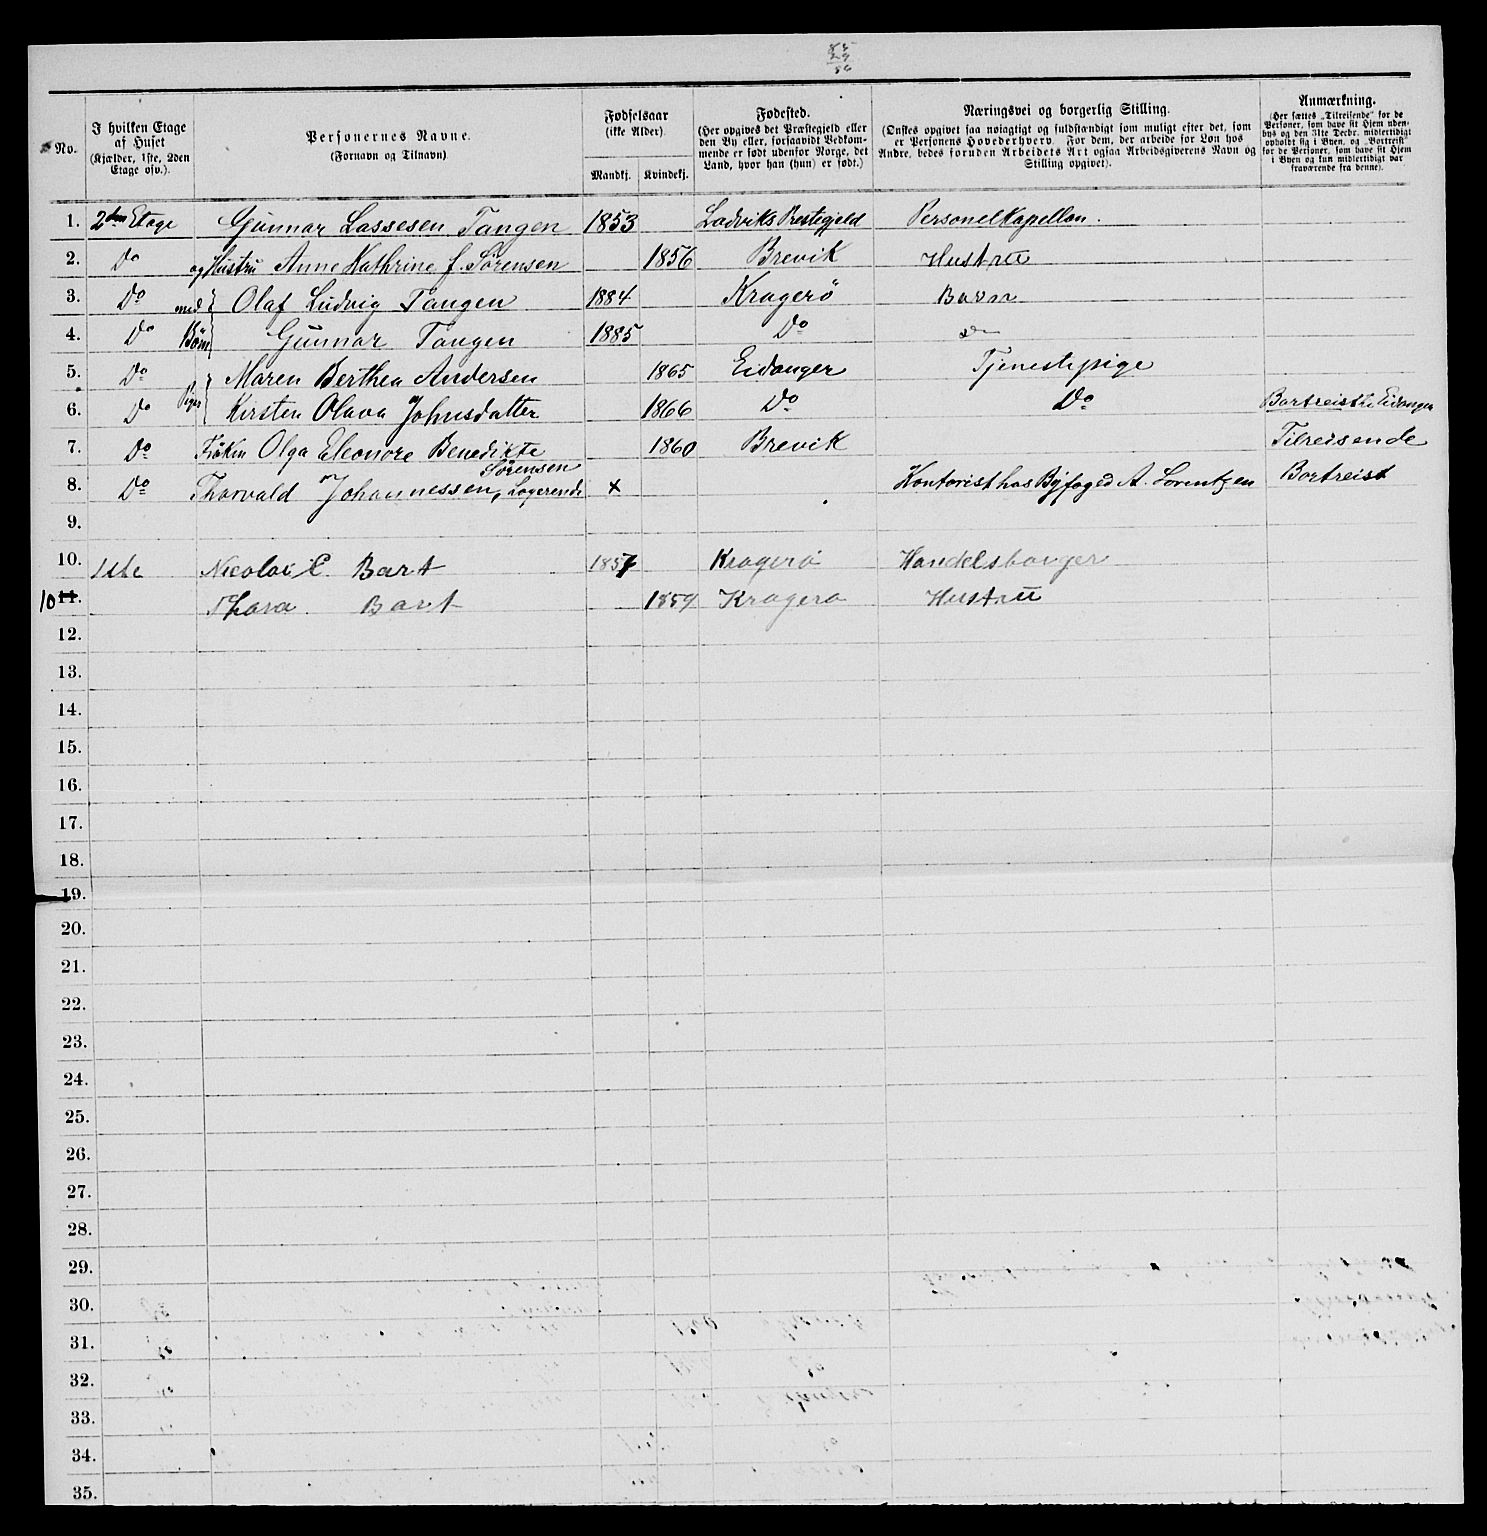 85
29
56
No.
I hvilken Etage af Huset (Kjælder, 1ste, 2den Etage osv.).
Personernes Navne. (Fornavn og Tilnavn)
Fødselsaar (ikke Alder). Mandkj. Kvindekj.
Fødested. (Her opgives det Præstegjeld eller den By eller, forsaavidt Vedkommende er født udenfor Norge, det Land, hvor han (hun) er født.)
Næringsvei og borgerlig Stilling. (Ønskes opgivet saa nøiagtigt og fuldstændigt som muligt efter det, som er Personens Hovederhverv. For dem, der arbeide for Løn hos Andre, bedes foruden Arbeidets Art ogsaa Arbeidsgiverens Navn og Stilling opgivet).
Anmærkning. (Her sættes „Tilreisende“ for de Personer, som have sit Hjem udenbys og den 31te Decbr. midlertidigt opholdt sig i Byen, og „Bortreist“ for de Personer, som have sit Hjem i Byen og kun midlertidigt var fraværende fra denne).
1. 2den Etage Gunnar Lassesen Tangen 1853 Ladviks Prestegjeld Personelkapellan.
2. Do og Hustru Anne Kathrine f. Sørensen 1856 Brevik Hustru
3. Do med Olaf Ludvig Tangen 1884 Kragerö Barn
4. Do Börn Gunnar Tangen 1885 Do Do
5. Do Maren Berthea Andersen 1865 Eidanger Tjenestepige
6. Do Piger Kirsten Olava Johnsdatter 1866 Do Do Bortreist til Eidanger
7. Do Fröken Olga Eleonore Benedikte Sørensen 1860 Brevik Tilreisende
8. Do Thorvald Johannessen, Logerende x Kontorist hos Byfoged A. Lorentzen Bortreist
9.
10. 1ste Nicolai C. Bart 1857 Kragerö Handelsborger
10 11. Thora Bart 1859 Kragerø Hustru
12.
13.
14.
15.
16.
17.
18.
19.
20.
21.
22.
23.
24.
25.
26.
27.
28.
29.
30.
31.
32.
33.
34.
35.